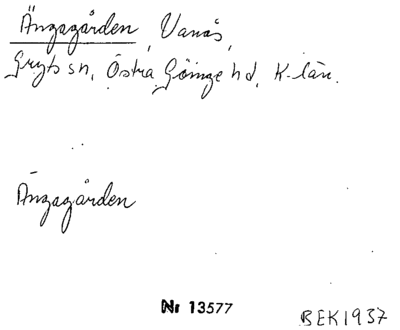 Ängagården, Vanås,
Gryts sn, Östra Göinge hd, K-län.
Ängagården
Nr 13577
BEK1937